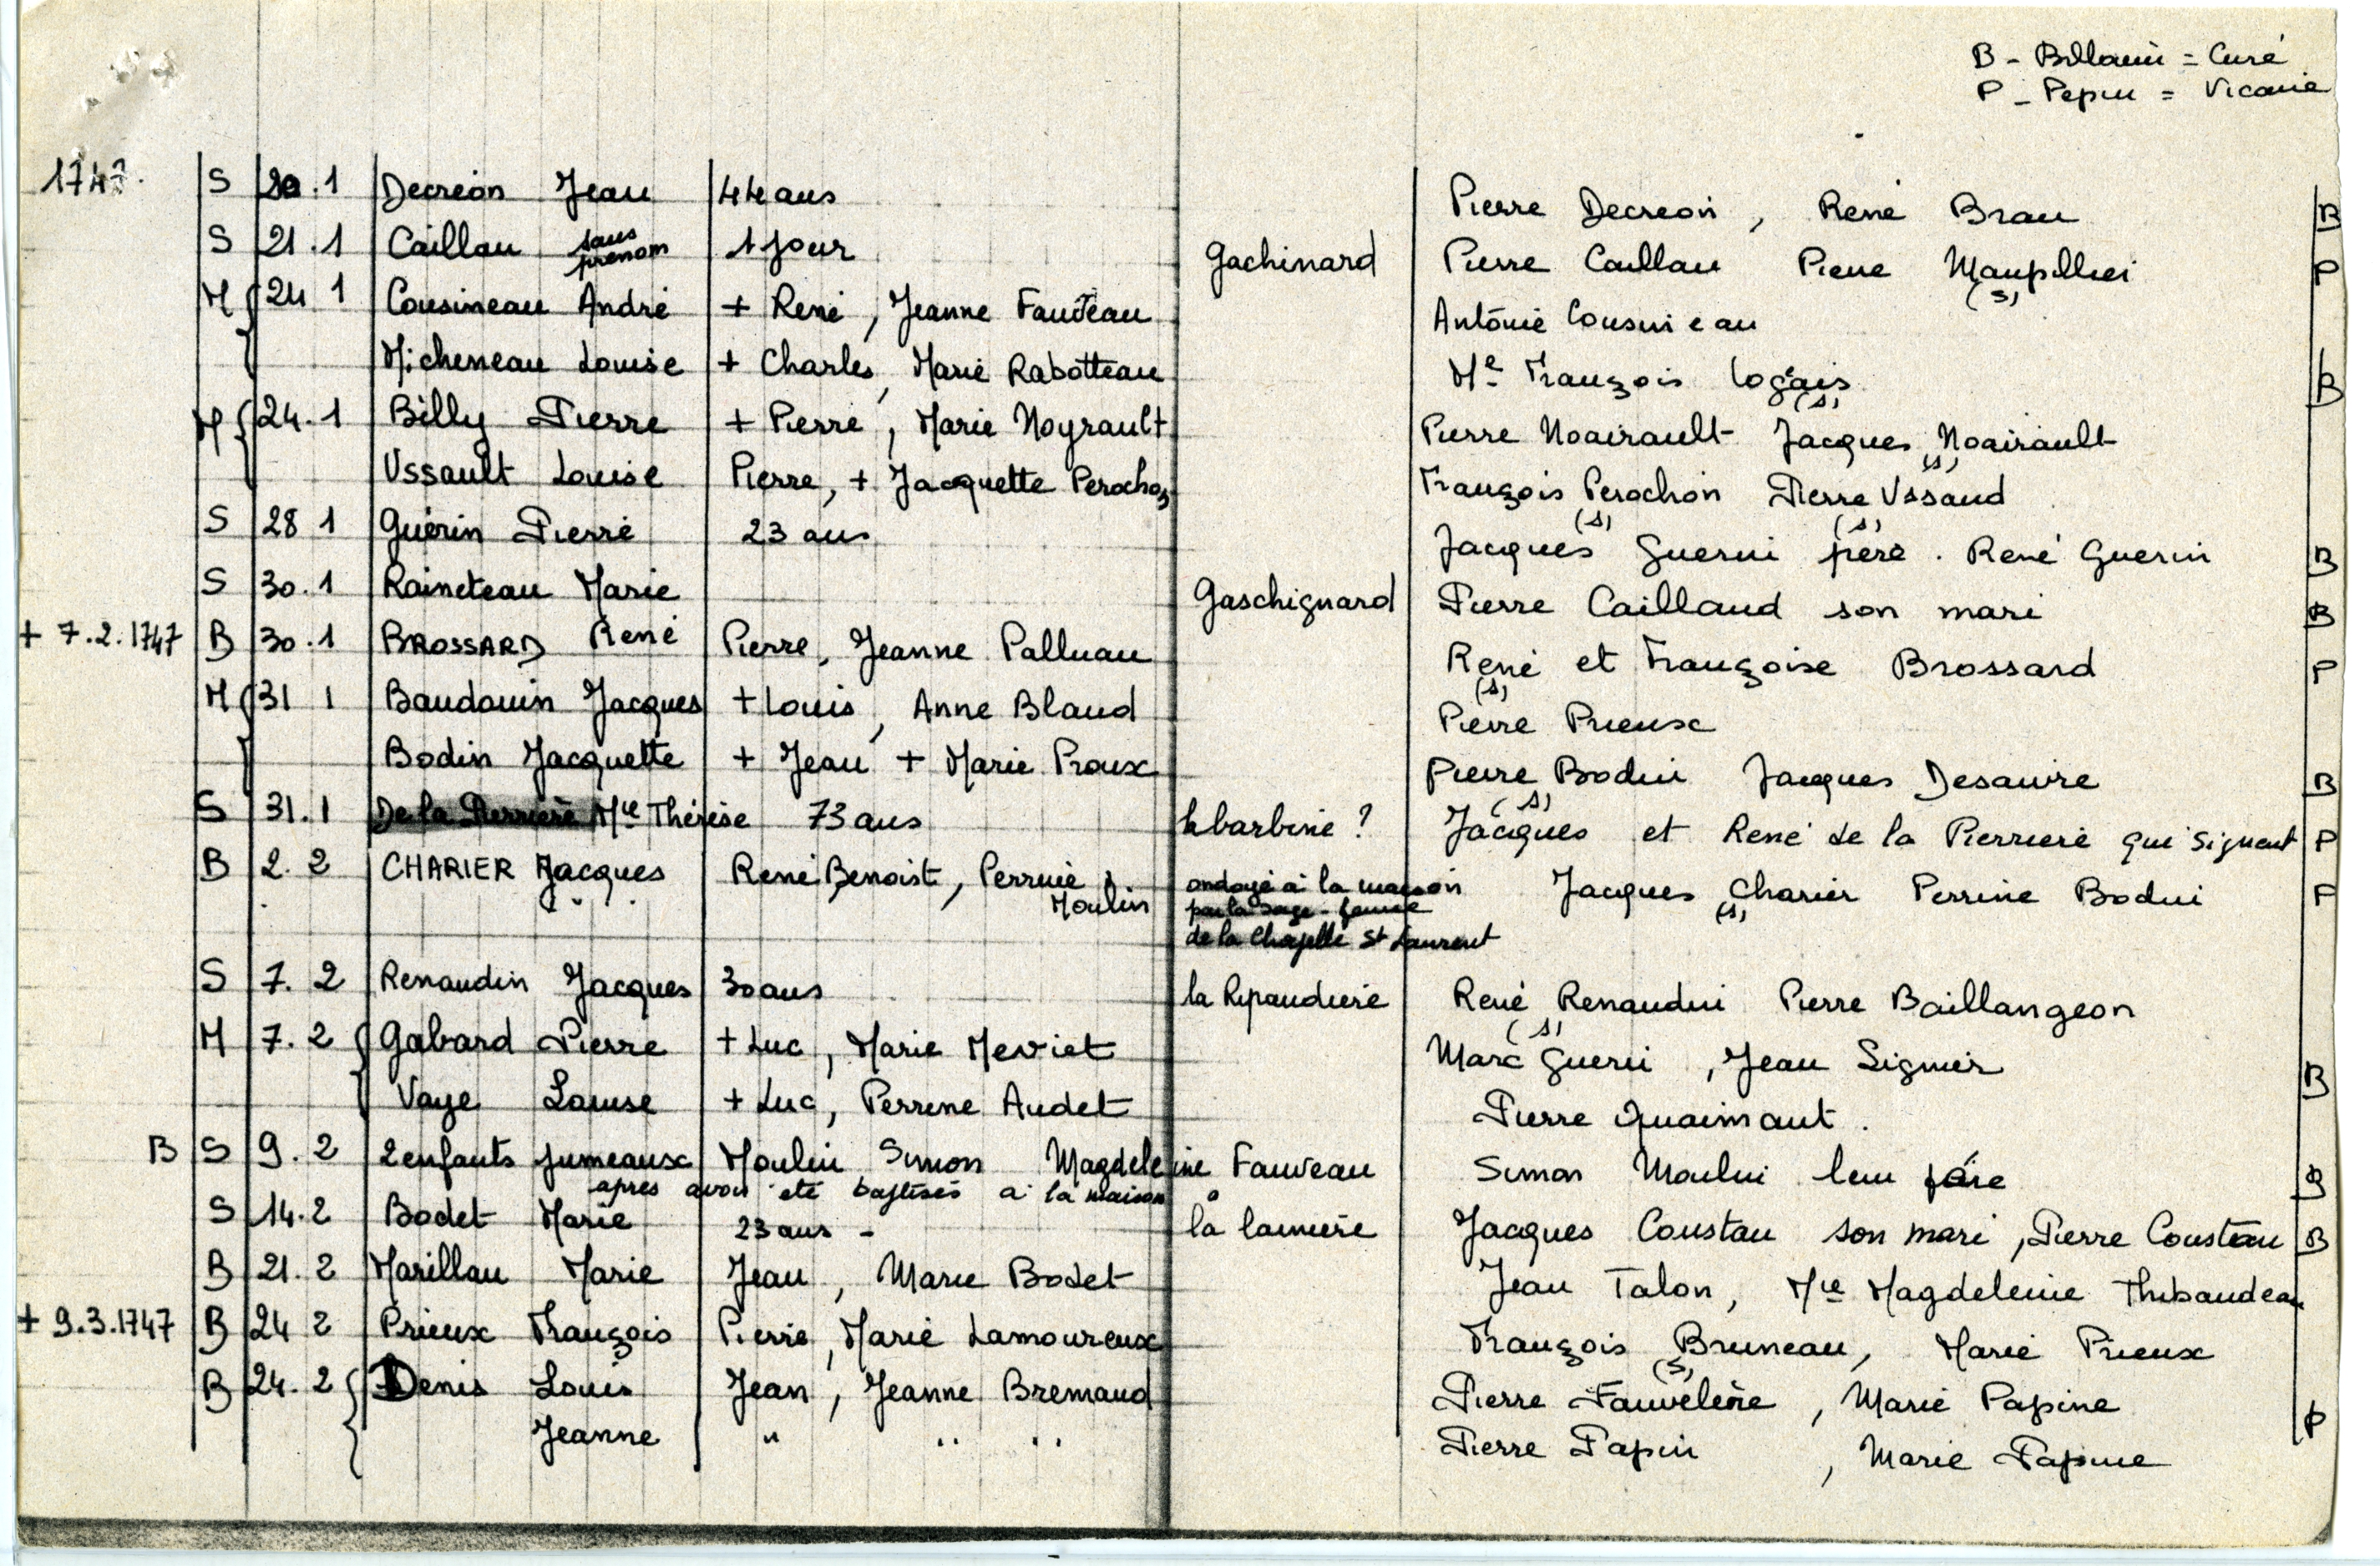 B - Billouin = Curé
P - Pepin = Vicaire
1747. S 20.1 Decreon Jean 44 ans Pierre Decreon, René Brau B
S 21.1 Caillau sans prenom 1 jour Gachinard Pierre Caillau Pierre Maupillier (s) P
M 24 1 Cousineau André + René, Jeanne Fauveau Antoine Cousineau
Micheneau Louise + Charles, Marie Rabotteau Me François Logeais (s) B
M 24.1 Billy Pierre + Pierre, Marie Noyrault Pierre Noairault Jacques Noairault (s)
Ussault Louise Pierre, + Jacquette Perochon François Perochon (s) Pierre Ussaud (s)
S 28 1 Guérin Pierre 23 ans Jacques Guerin père. René Guerin B
S 30.1 Raineteau Marie Gaschignard Pierre Caillaud son mari B
+ 7.2.1747 B 30.1 BROSSARD René Pierre, Jeanne Palluau René (s) et Françoise Brossard P
M 31 1 Baudouin Jacques + Louis, Anne Blaud Pierre Prieux
Bodin Jacquette + Jean + Marie Proux Pierre Bodin (s) Jacques Desaivre B
S 31.1 De la Perrière Mie Thérèse 73 ans la barbine ? Jacques et René de la Pierriere qui signent P
B 2.2 CHARIER Jacques René Benoist, Perrine Moulin ondoyé à la maison par la sage-femme de la Chapelle St Laurent Jacques Charier (s) Perrine Bodin P
S 7.2 Renaudin Jacques 30 ans la Ripaudiere René Renaudin (s) Pierre Baillangeon
M 7.2 Gabard Pierre + Luc, Marie Meviet Marc Guerin, Jean Signier B
Vaye Louise + Luc, Perrine Audet Pierre Quaimaut.
B S 9.2 2 enfants jumeaux Moulin Simon Magdeleine Fauveau Simon Moulin leur père B
après avoir été baptisés à la maison
S 14.2 Bodet Marie 23 ans - la lamière Jacques Coustau son mari, Pierre Coustau B
B 21.2 Marillau Marie Jean, Marie Bodet Jean Talon, Mie Magdeleine Thibaudeau
+ 9.3.1747 B 24 2 Prieux François Pierre, Marie Lamoureux François Bruneau (s), Marie Prieux
B 24.2 Denis Louis Jean, Jeanne Bremaud Pierre Fauvelière, Marie Papine P
Jeanne " " " Pierre Papin, Marie Papine